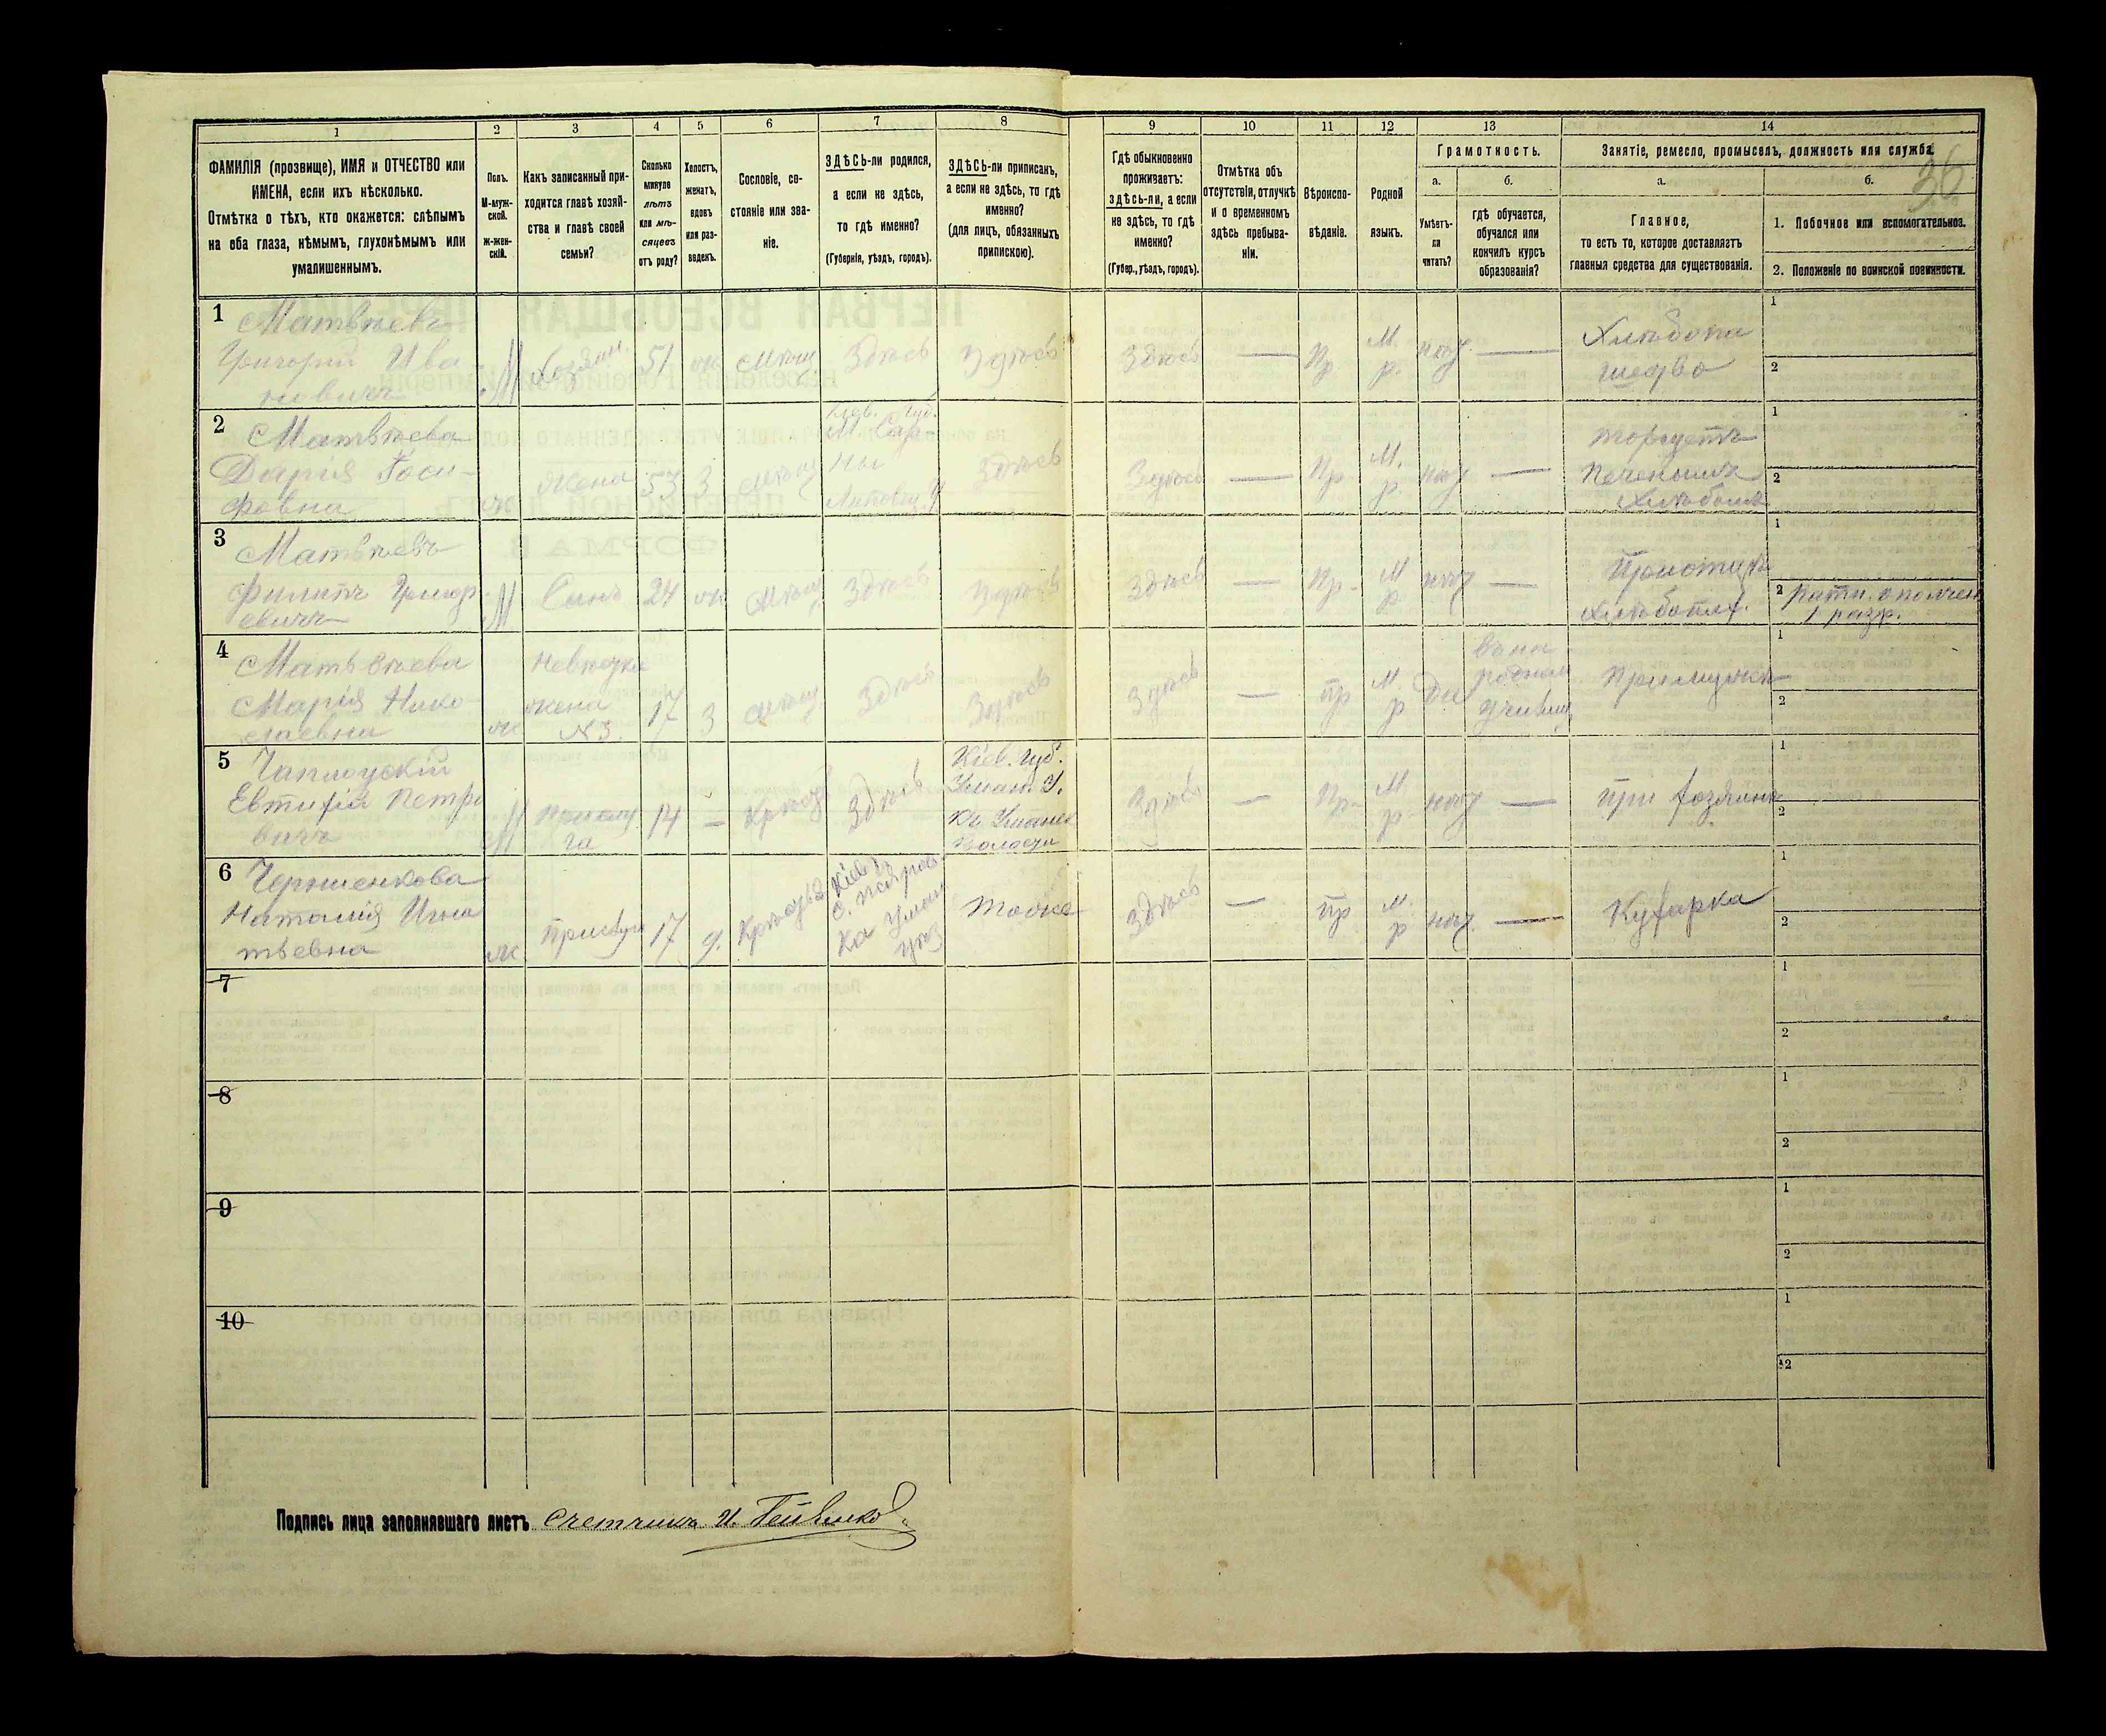 36
1 2 3 4 5 6 7 8 9 10 11 12 13 14
ФАМИЛІЯ (прозвище), ИМЯ и ОТЧЕСТВО или
ИМЕНА, если ихъ нѣсколько.
Отмѣтка о тѣхъ, кто окажется: слѣпымъ
на оба глаза, нѣмымъ, глухонѣмымъ или
умалишеннымъ.
Полъ.
М-муж-
ской.
Ж-жен-
скій.
Какъ записанный при-
ходится главѣ хозяй-
ства и главѣ своей
семьи?
Сколько
минуло
лѣтъ
или мѣ-
сяцевъ
отъ роду?
Холостъ,
женатъ,
вдовъ
или раз-
веденъ.
Сословіе, со-
стояніе или зва-
ніе.
ЗДѢСЬ-ли родился,
а если не здѣсь,
то гдѣ именно?
(Губернія, уѣздъ, городъ).
ЗДѢСЬ-ли приписанъ,
а если не здѣсь, то гдѣ
именно?
(для лицъ, обязанныхъ
припискою).
Гдѣ обыкновенно
проживаетъ:
здѣсь-ли, а если
не здѣсь, то гдѣ
именно?
(Губер., уѣздъ, городъ).
Отмѣтка объ
отсутствіи, отлучкѣ
и о временномъ
здѣсь пребыва-
ніи.
Вѣроиспо-
вѣданіе.
Родной
языкъ.
Грамотность.
а.
Умѣетъ-
ли
читать?
б.
гдѣ обучается,
обучался или
кончилъ курсъ
образованія?
Занятіе, ремесло, промыселъ, должность или служба.
а.
Главное,
то есть то, которое доставляетъ
главныя средства для существованія.
б.
1. Побочное или вспомогательное.
2. Положеніе по воинской повинности.
1 Матвѣевъ
Григорій Ива
новичъ
М
хозяин.
51
ж
мѣщ
Здѣсь
Здѣсь
Здѣсь
—
Пр
М.
р.
нѣт
—
Хлѣбопа
шество
1
2
2 Матвѣева
Дарія Іоси-
фовна
ж
жена
53
З
мѣщ
Кіев. Губ.
М. Сар-
ны
Липовец. У
Здѣсь
Здѣсь
—
Пр
М.
р.
нѣт
—
торгуетъ
печенымъ
хлѣбомъ
1
2
3 Матвѣевъ
Филипъ Григор
евичъ
М
Сынъ
24
ж
Мѣщ
Здѣсь
Здѣсь
Здѣсь
—
Пр.
М
р.
нѣт
—
При отцѣ
хлѣбопаш.
1
2 Ратн. ополчен
1 разр.
4 Матвѣева
Марія Нико
лаевна
ж
Невѣстка
жена
№3.
17
З
мѣщ
Здѣсь
Здѣсь
Здѣсь
—
пр
М.
р
Да
родном
училищ
При мужѣ
1
2
5
Евтифій Петро
вичъ
М
14
—
Крест
Здѣсь
Кіев. Губ.
Уман. У.
Волости
Здѣсь
—
Пр.
М.
р.
нѣт
—
При хозяинѣ
1
2
6
Наталія Игна
тьевна
ж
Прислуга
17
д.
Кіев.
Уман
уѣз
Тоже
Здѣсь
—
пр
М.
р
нѣт.
—
Кухарка
1
2
7
1
2
8
1
2
9
1
2
10
1
2
Подпись лица заполнявшаго листъ Счетчикъ И.